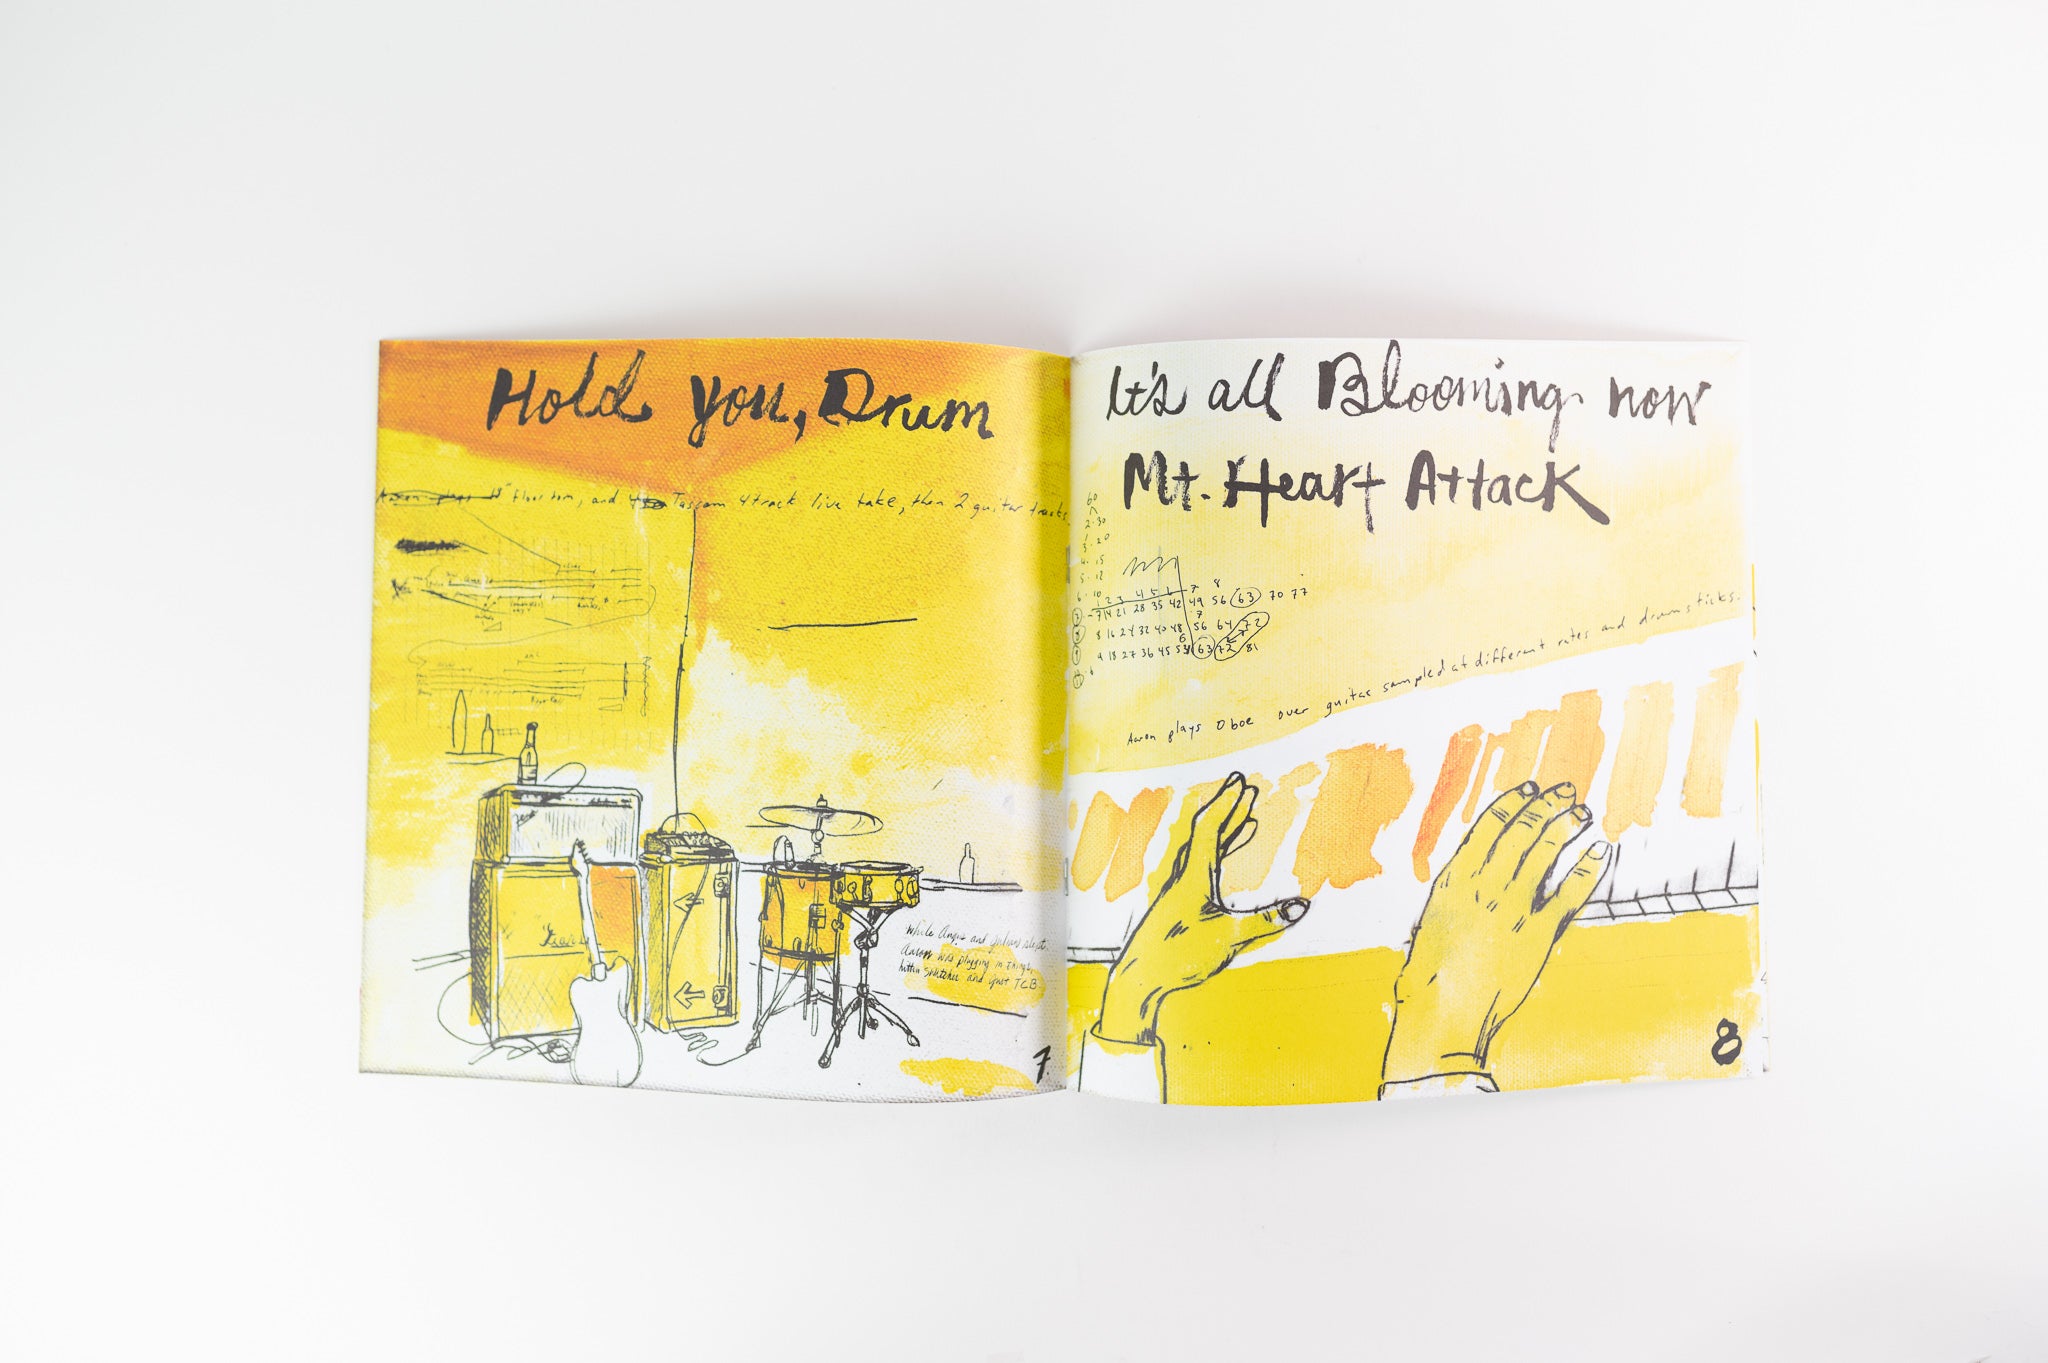 Hold you, Drum
Aaron plays 18" floor tom, and 4 Tascam 4 track live take, then 2 guitar tracks.
While Angus and Julian slept,
Aaron was plugging in things,
hitten switches and just TCB
7
It's all Blooming now
Mt. Heart Attack
60
2·30
3·20
4·15
5·12
6·10
1 2 3 4 5 6 7 8
7 14 21 28 35 42 49 56 63 70 77
7
8 16 24 32 40 48 56 64 72
6
9 18 27 36 45 54 63 72 81
Aaron plays Oboe over guitar sampled at different rates and drumsticks.
8